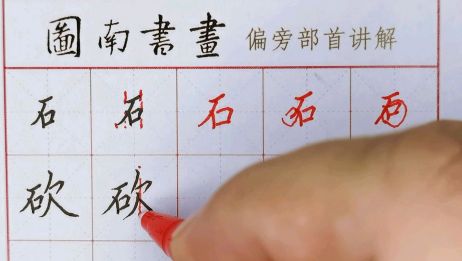 圖南書畫 偏旁部首讲解
石 石 石 石 石
砍 砍